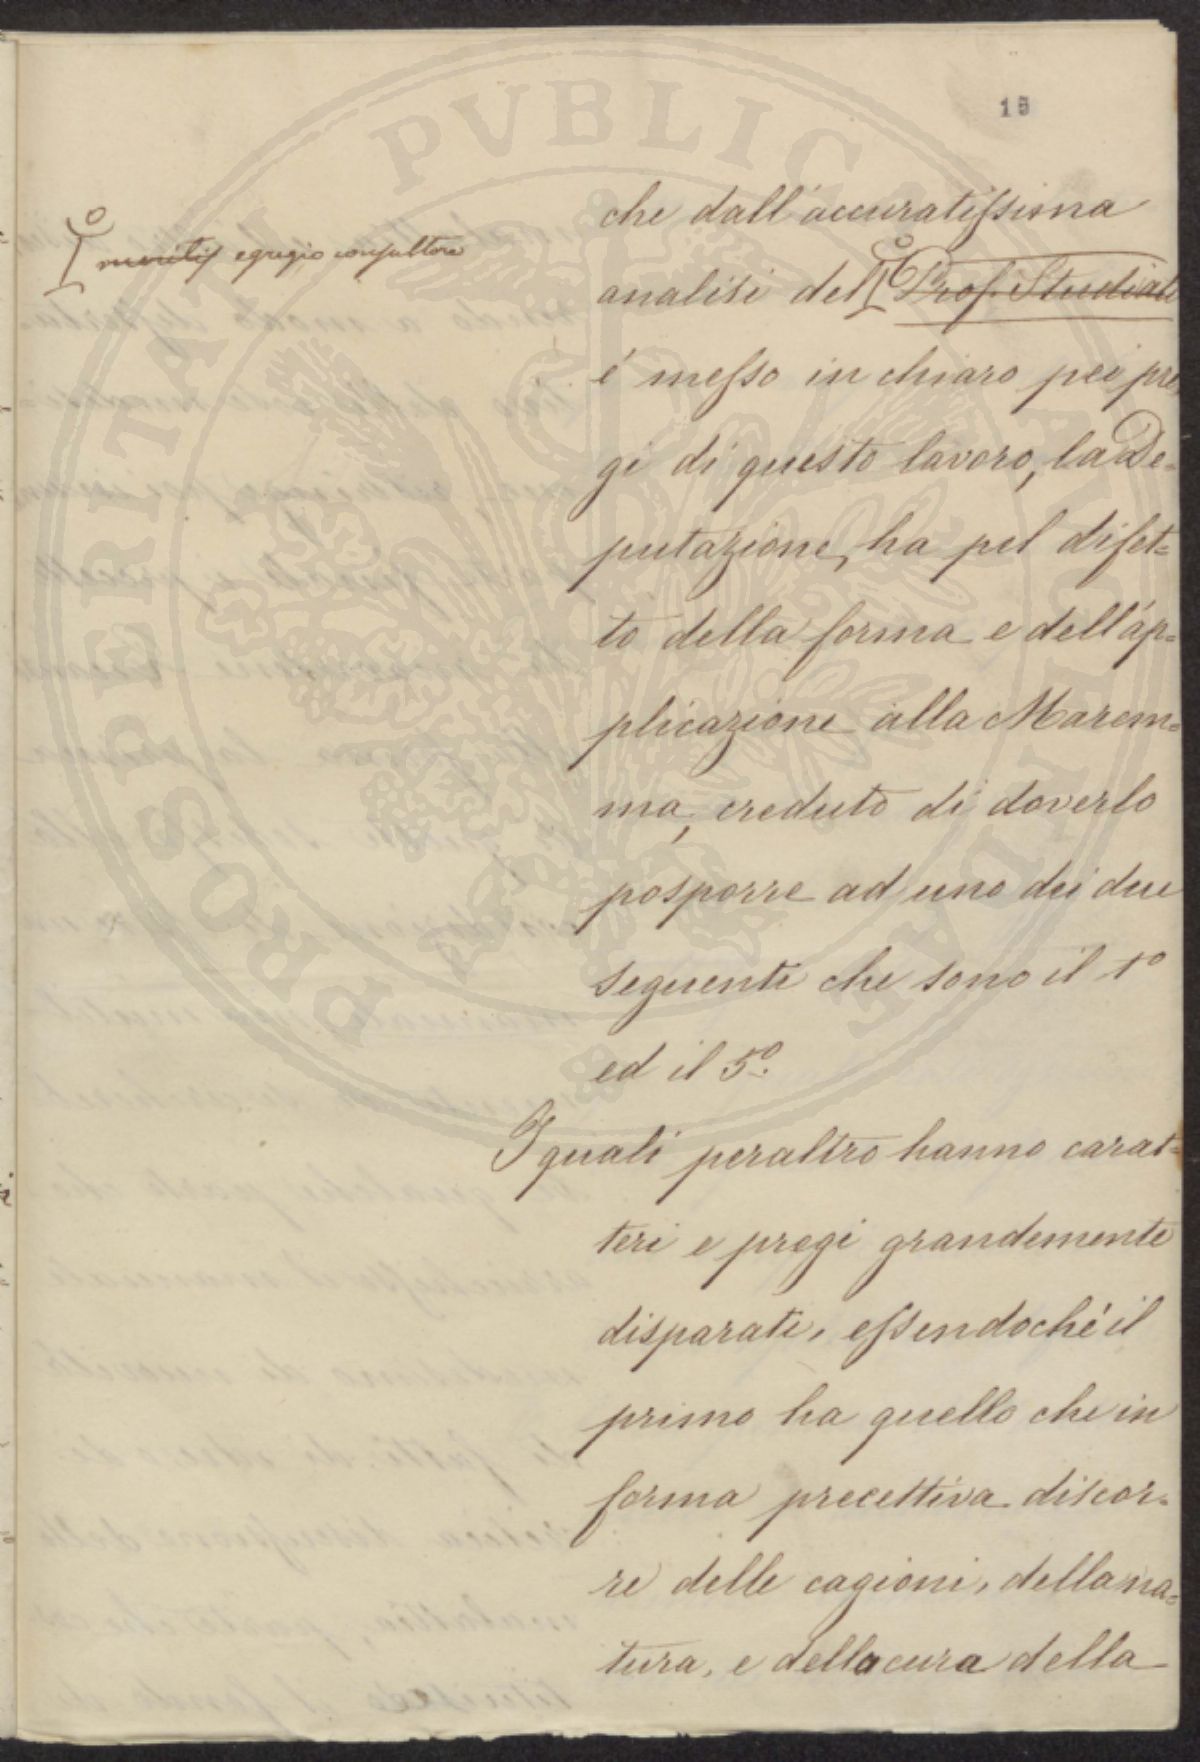 15
che dall'accuratissima
egregio consultore
analisi del Prof. Studiati
é messo in chiaro pei pre
gi di questo lavoro, la De=
putazione, ha pel difet=
to della forma e dell'ap=
plicazione alla Marem=
ma, creduto di doverlo
posporre ad uno dei due
seguenti che sono il 1º
ed il 5º.
I quali peraltro hanno carat=
teri e pregi grandemente
disparati, essendoché il
primo ha quello che in
forma precettiva discor=
re delle cagioni, della na=
tura, e della cura della
PROSPERITATI PVBLICAE AVGENDAE